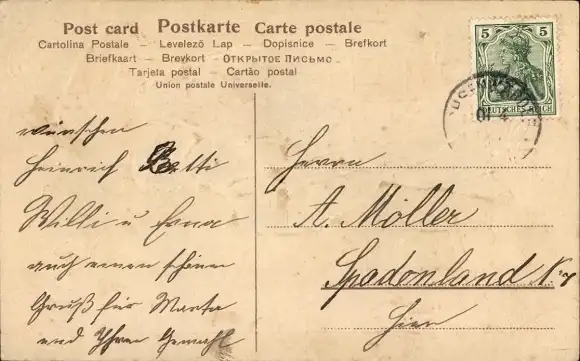 Post card Postkarte Carte postale
Cartolina Postale – Levelező Lap – Dopisnice – Brefkort
Briefkaart – Brevkort – Открытое Письмо
Tarjeta postal – Cartão postal
Union postale Universelle.
5 5
DEUTSCHES REICH
wünschen
Heinrich Betti
Willi u Erna
auch einen schönen
Gruß für Marta
und Ihren Gemahl
Herrn
A. Möller
Spadenland
Hier